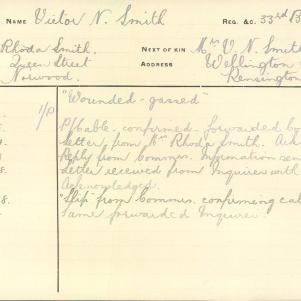 NAME Victor N. Smith REG. &C. 33rd B
Rhoda Smith. NEXT OF KIN Mrs V. N. Smith
Queen Street ADDRESS Wellington
Norwood. Kensington
"Wounded - gassed"
1/P P/Cable. confirmed. forwarded by
Letter from Mrs Rhoda Smith. Ack
Reply from Commrs. Information sen
Letter received from Inquirer with
Acknowledged.
8. "Slip" from Commrs. confirming cab
same forwarded Inquirer.